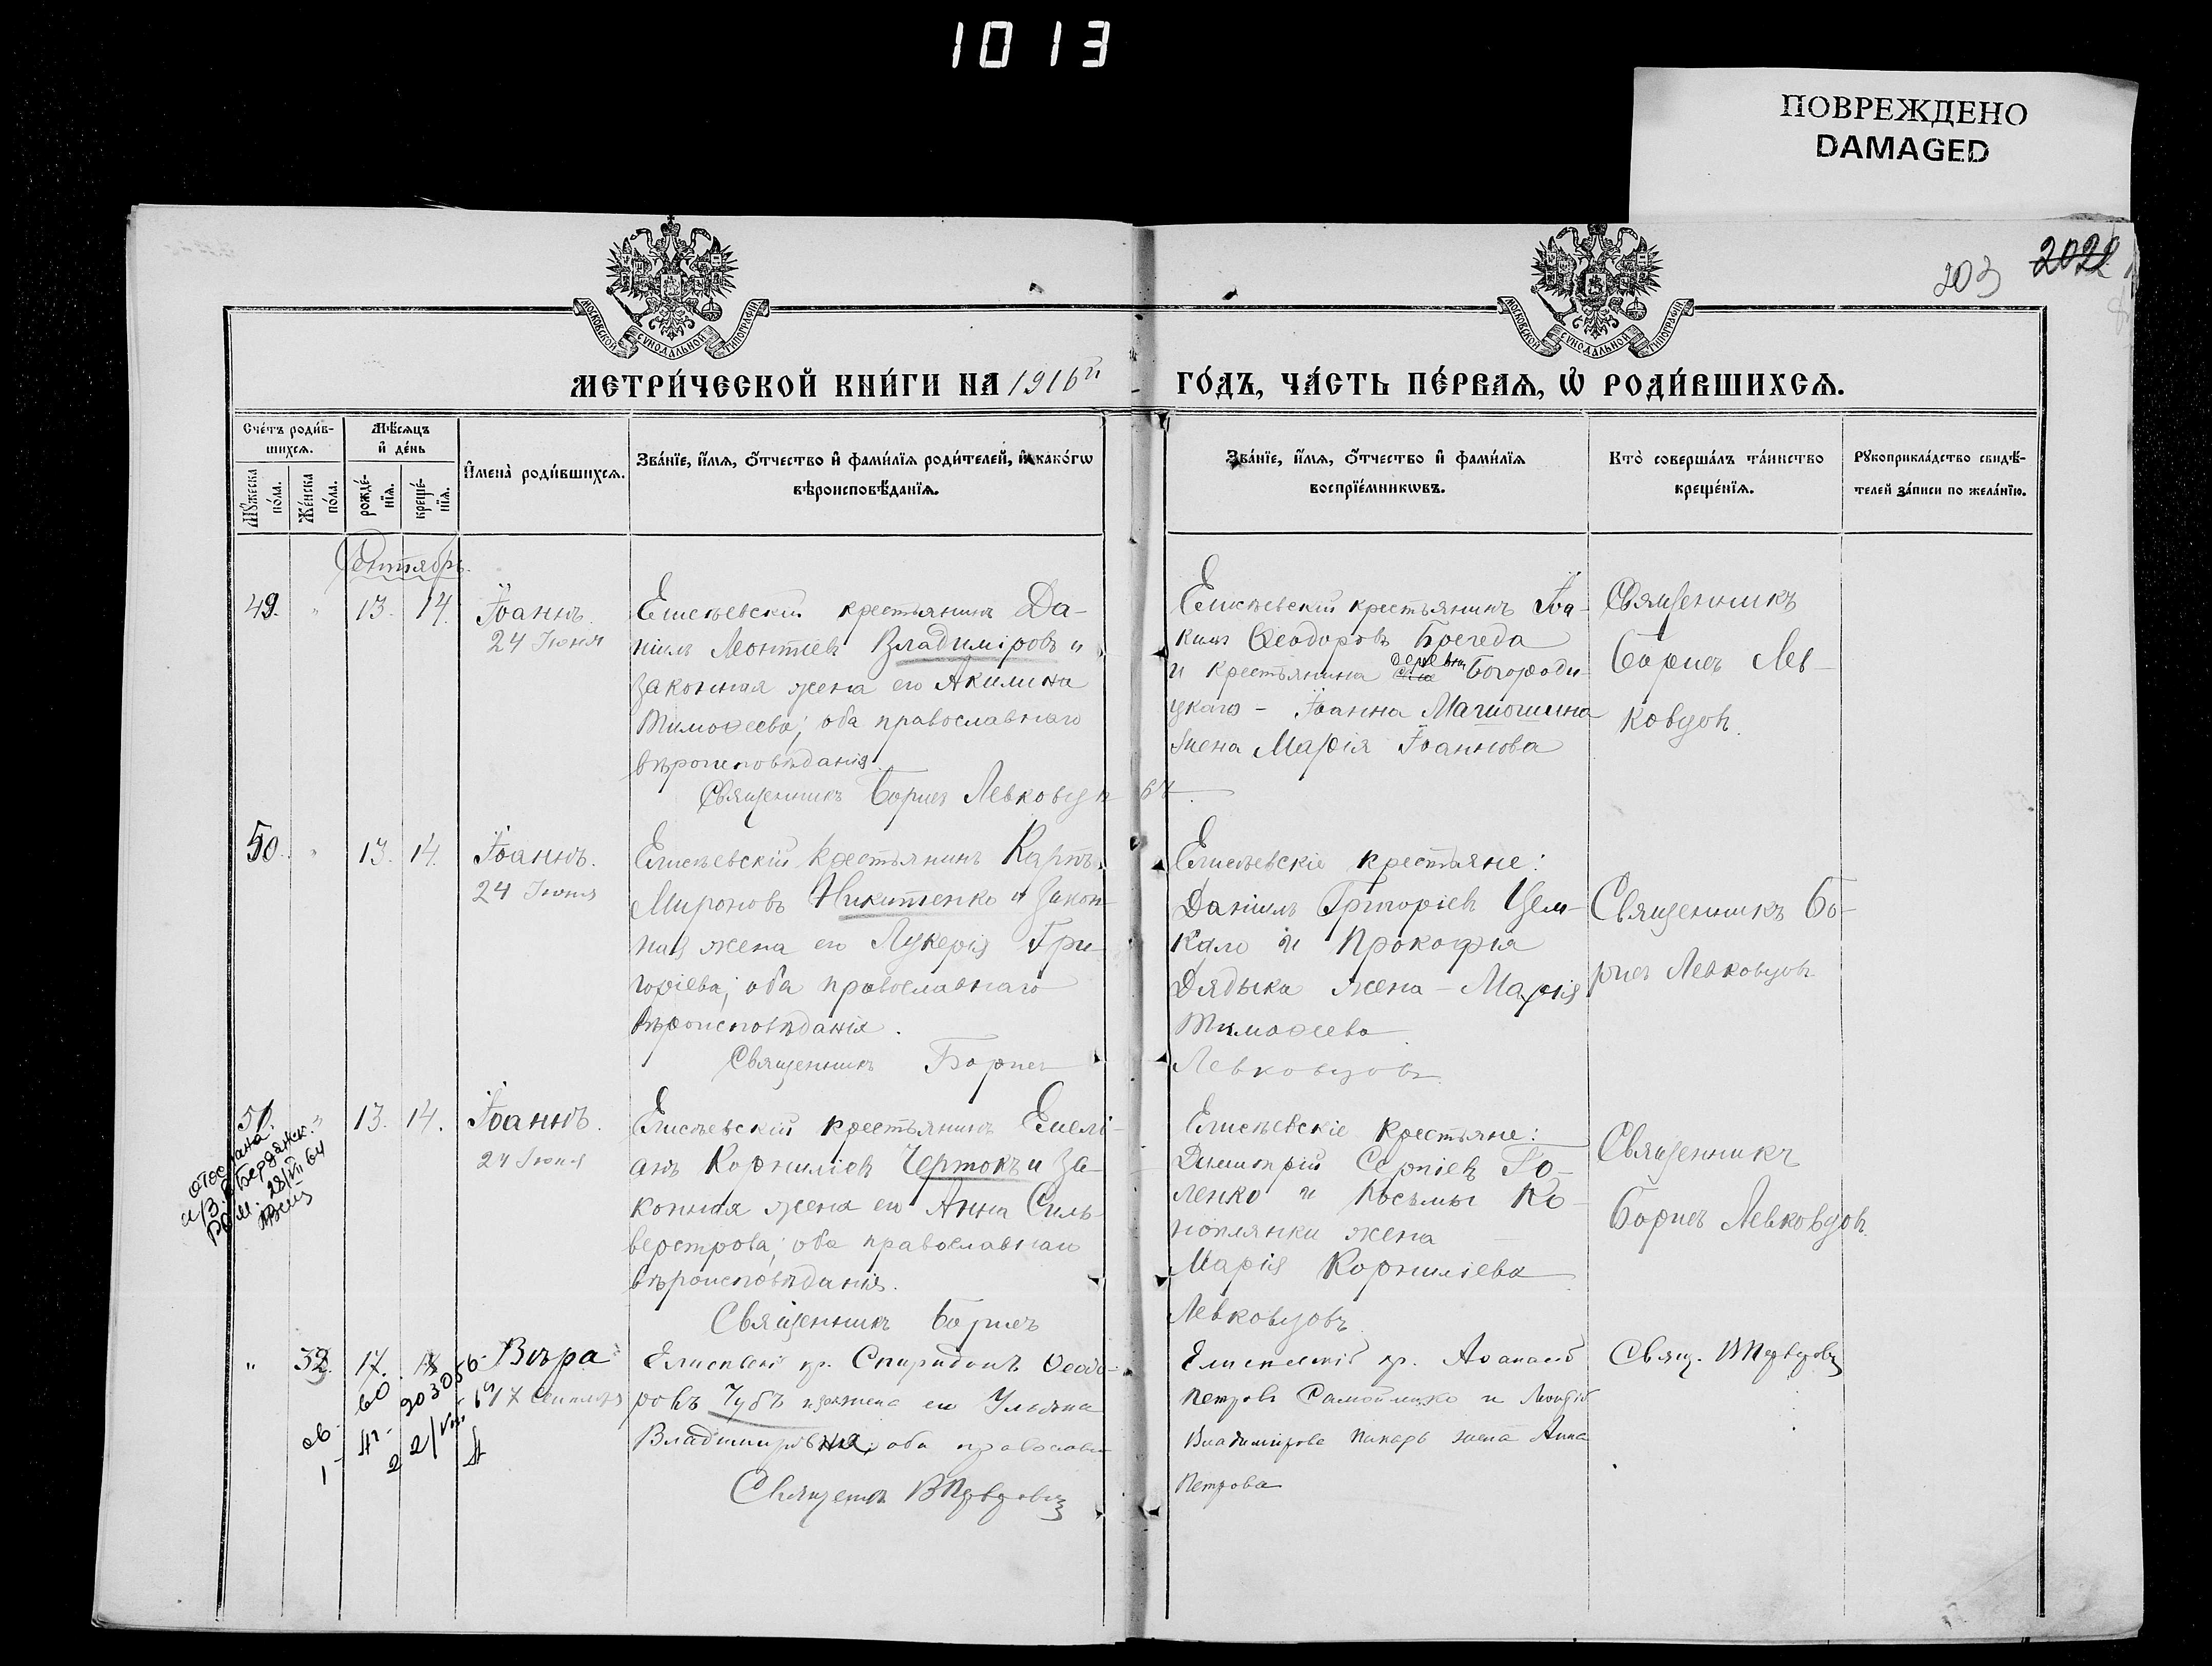 1013
ПОВРЕЖДЕНО
DAMAGED
203 2022
МОСКОВСКОЙ СѴНОДАЛЬНОЙ ТИПОГРАФІИ
МОСКОВСКОЙ СѴНОДАЛЬНОЙ ТИПОГРАФІИ
МЕТРИ́ЧЕСКОЙ КНИ́ГИ НА 1916й ГО́ДЪ, ЧА́СТЬ ПЕ́РВАѦ, Ѡ҆ РОДИ́ВШИХСѦ.
Сче́тъ роди́в-
шихсѧ.
Мꙋ́жеска по́ла.
Же́нска по́ла.
Мѣ́сѧцъ
и҆ де́нь
рожде́-
нїѧ.
креще́-
нїѧ.
И҆мена̀ роди́вшихсѧ.
Зва́нїе, и҆́мѧ, ѻ҆́тчество и҆ фами́лїѧ роди́телей, и҆ како́гѡ
вѣроисповѣ́данїѧ.
Зва́нїе, и҆́мѧ, ѻ҆́тчество и҆ фами́лїѧ
воспрїе́мникѡвъ.
Кто̀ соверша́лъ та́инство
креще́нїѧ.
Рꙋкоприкла́дство свидѣ́-
телей за́писи по жела́нїю.
Сентябрь.
49. " 13. 14. Іоаннъ.
24 Іюня
Елисѣевскій крестьянинъ Да-
ніилъ Леонтіевъ Владиміровъ и
законная жена его Акилина
Тимоѳеева; оба православнаго
вѣроисповѣданія.
Священникъ Борисъ Левковцовъ
Елисѣевскій крестьянинъ Іоа-
кимъ Ѳеодоровъ
и крестьянина деревни Богороди-
цкаго - Іоанна Матюшина
жена Марія Іоаннова
Священникъ
Борисъ Лев-
ковцовъ.
50. " 13. 14. Іоаннъ.
24 Іюня
Елисѣевскій крестьянинъ Карпъ
Мироновъ Никитенко и закон-
ная жена его Лукерія Гри-
горіева; оба православнаго
вѣроисповѣданія.
Священникъ Борисъ
Елисѣевскіе крестьяне:
Даніилъ Григоріевъ Цем-
кало и Прокофія
Дядыка жена - Марія
Тимоѳеева
Левковцовъ
Священникъ Бо-
рисъ Левковцовъ
51. " 13. 14. Іоаннъ.
24 Іюня
Отослана
Бердянск.
28/VII 64
Елисѣевскій крестьянинъ Емелі-
анъ Корниліевъ Чертокъ и за-
конная жена его Анна Силь-
верстрова; оба православнаго
вѣроисповѣданія.
Священникъ Борисъ
Елисѣевскіе крестьяне:
Димитрій Сергіевъ Го-
ленко и Косьмы Ко-
ноплянки жена
Марія Корниліева
Левковцовъ
Священникъ
Борисъ Левковцовъ.
" 32 17. 18 Вѣра
17 Сентября
60 203056
Елисѣевскій кр. Спиридонъ Ѳеодо-
ровъ Чубъ и жена его Ульяна
Владимировна, оба православн
Елисѣевскій кр. Аѳанасій
Петровъ Самойленко и
Владимірова Пикарь жена Анна
Петрова
Свящ.